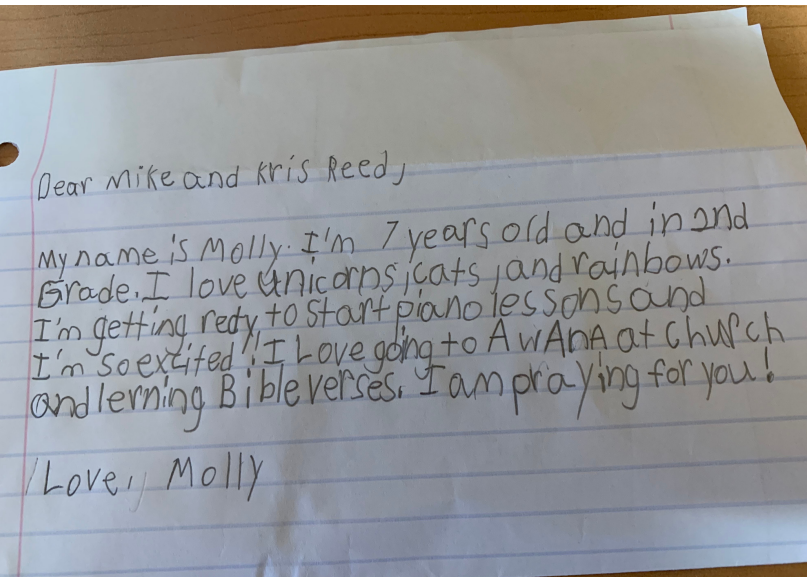 Dear Mike and Kris Reed,
My name is Molly. I'm 7 years old and in 2nd
Grade. I love unicorns, cats, and rainbows.
I'm getting redy to start piano lessons and
I'm so extited!! I Love going to AwAnA at church
and lerning Bible verses. I am praying for you!
Love, Molly